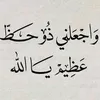 وَاجْعَلْنِي ذُوْ حَظٍّ
عَظِيْمٍ يَا اللّٰه